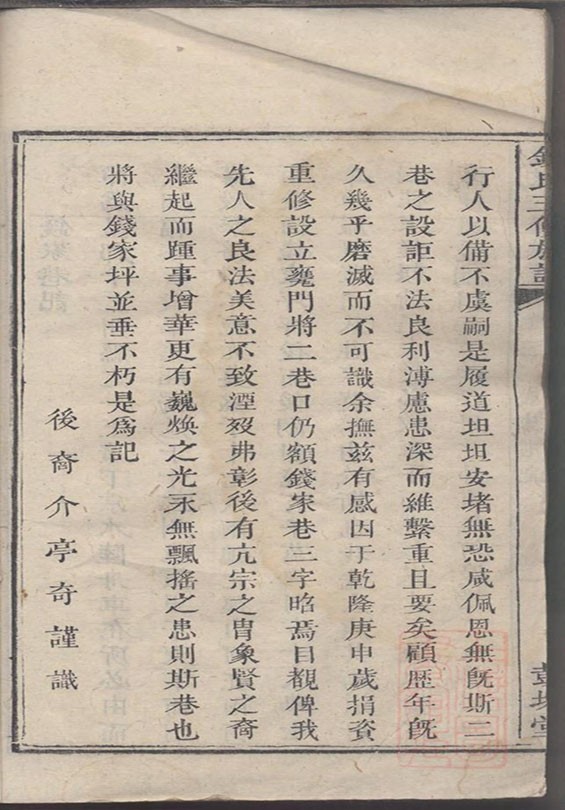 行人以備不虞嗣是履道坦坦安堵無恐咸佩恩無旣斯二
巷之設詎不法良利溥慮患深而維繫重且要矣顧歷年旣
久幾乎磨滅而不可識余撫兹有感因于乾隆庚申歲捐資
重修設立甕門將二巷口仍額錢家巷三字昭焉目覩俾我
先人之良法美意不致湮歿弗彰後有亢宗之胄象賢之裔
繼起而踵事增華更有巍焕之光永無飄搖之患則斯巷也
將與錢家坪並垂不朽是爲記
後裔介亭奇謹識
錢氏三修族譜
彭城堂